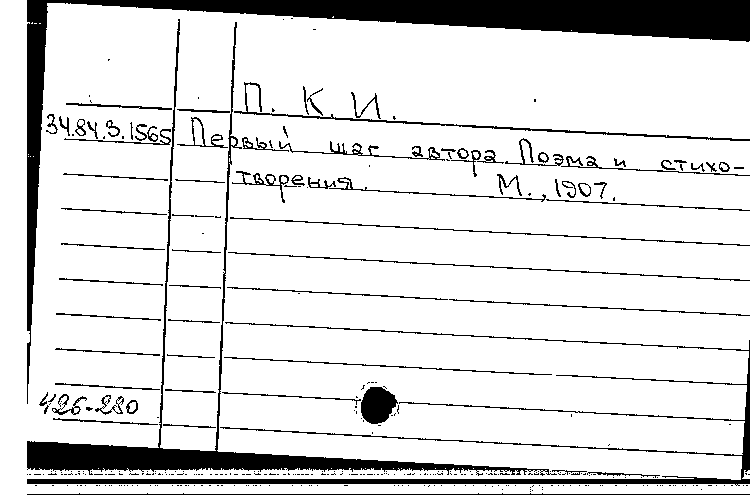 П. К. И.
34.84.3.1565 Первый шаг автора. Поэма и стихо-
творения. М., 1907.
426-280